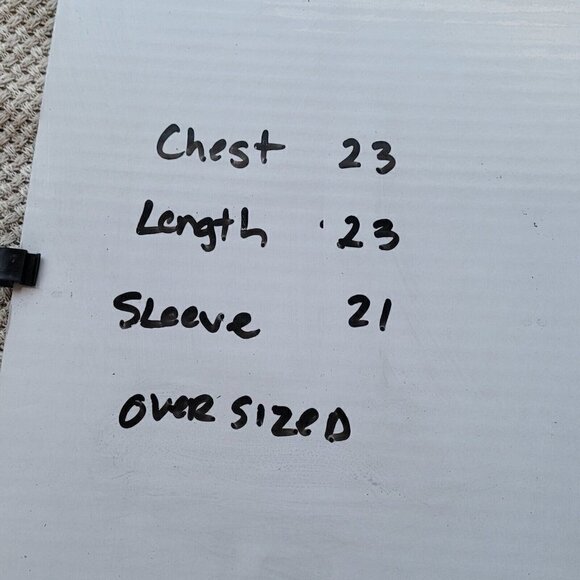 Chest 23
Length 23
Sleeve 21
OVER SIZeD